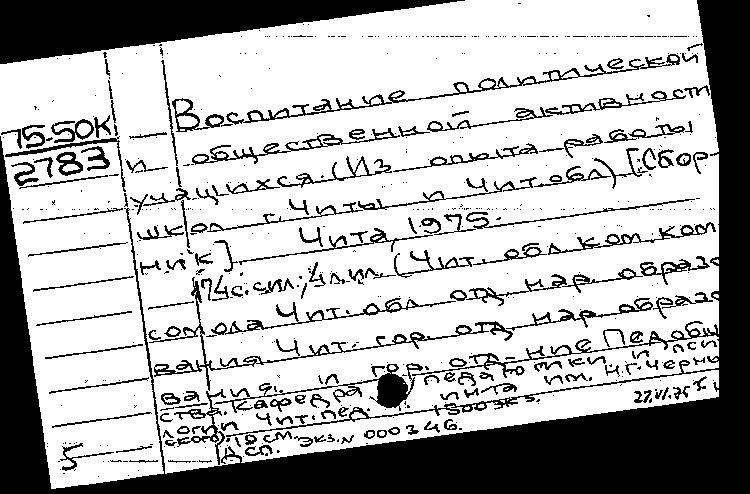 75-50К
2783
Воспитание политической
и общественной активности
учащихся. (Из опыта работы
школ г. Читы и Чит. обл) [Сбор-
ник]. Чита, 1975.
174 с. с ил.; 4 л. ил. (Чит. обл. ком. ком
сомола Чит. обл. отд. нар. образо
вания. Чит. гор. отд. нар. образо
вания. и гор. отд-ние Педобщ
ства. Кафедра педагогики и пси
логии Чит. пед. ин-та им. Н.Г. Черны
ского). 20 см. 1500 экз. 27.VI.75
ДСП. Экз. N 000346.
5